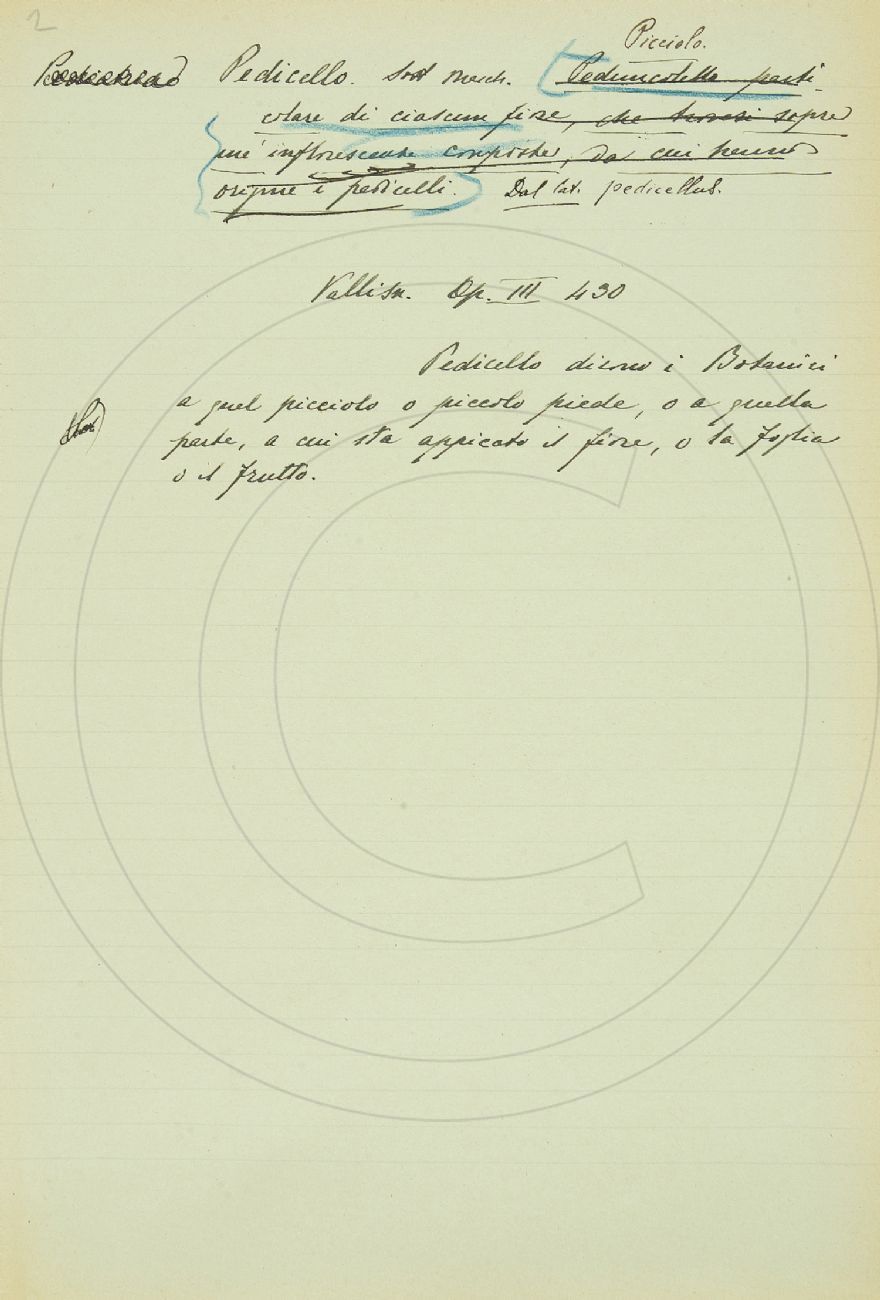 2
Picciolo.
Pedicello. Sost. masch. Peduncoletto parti-
colare di ciascun fiore, che trovasi sopra
una infiorescenza composta, da cui hanno
origine i pedicelli. Dal lat. pedicellus.
Vallisn. Op. III 430
Pedicello dicono i Botanici
a quel picciolo o piccolo piede, o a quella
parte, a cui sta appicato il fiore, o la foglia
o il frutto.